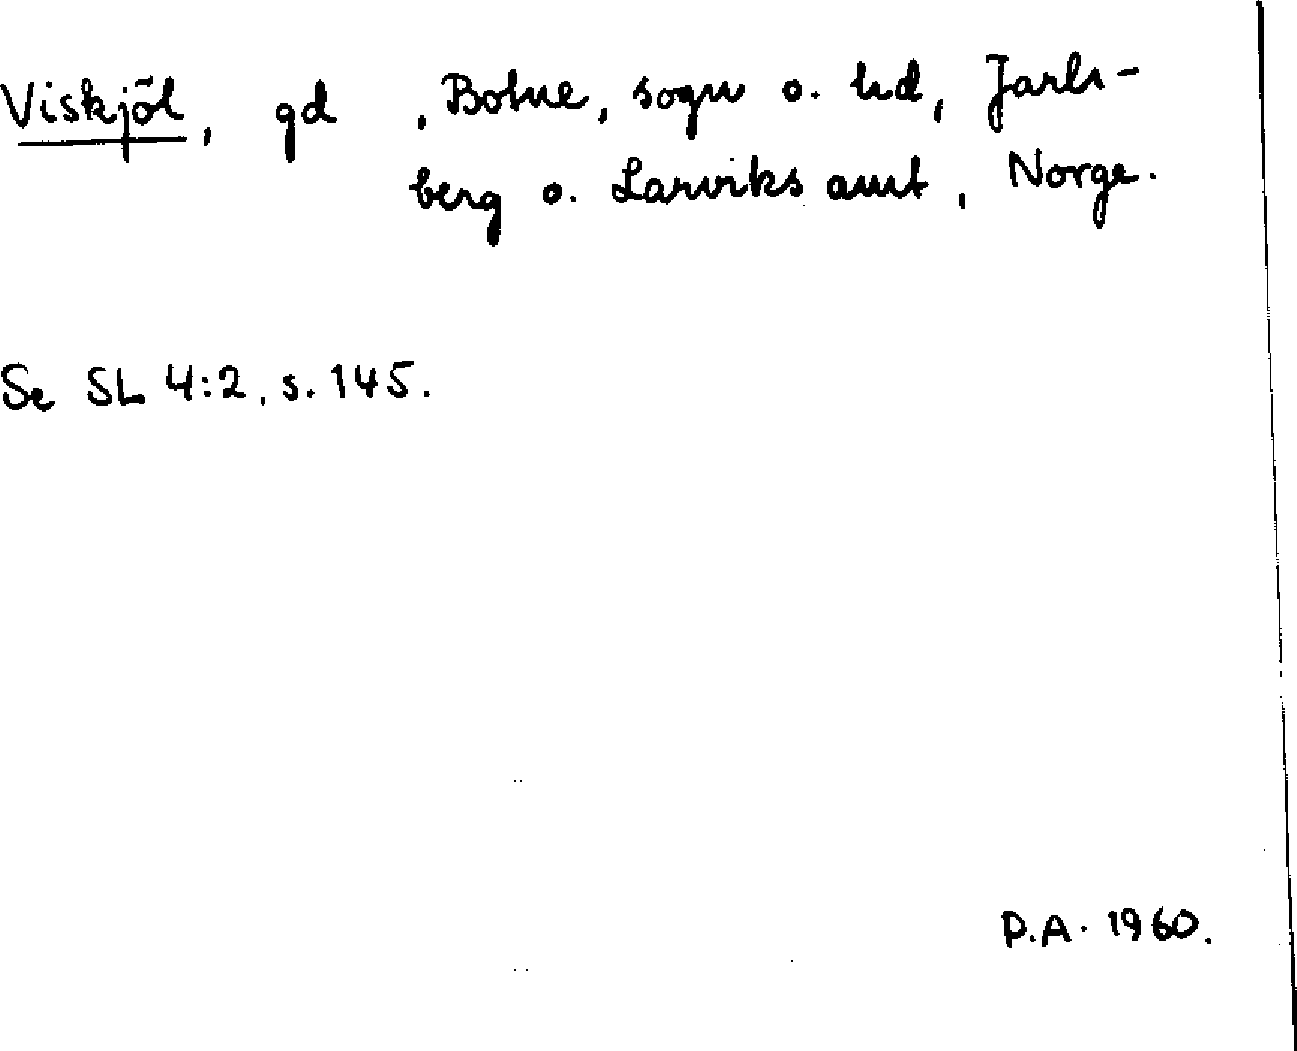 Viskjöl, gd , Botne, sogn o. hd, Jarls-
berg o. Larviks amt, Norge.
Se SL 4:2, s. 145.
P.A. 1960.